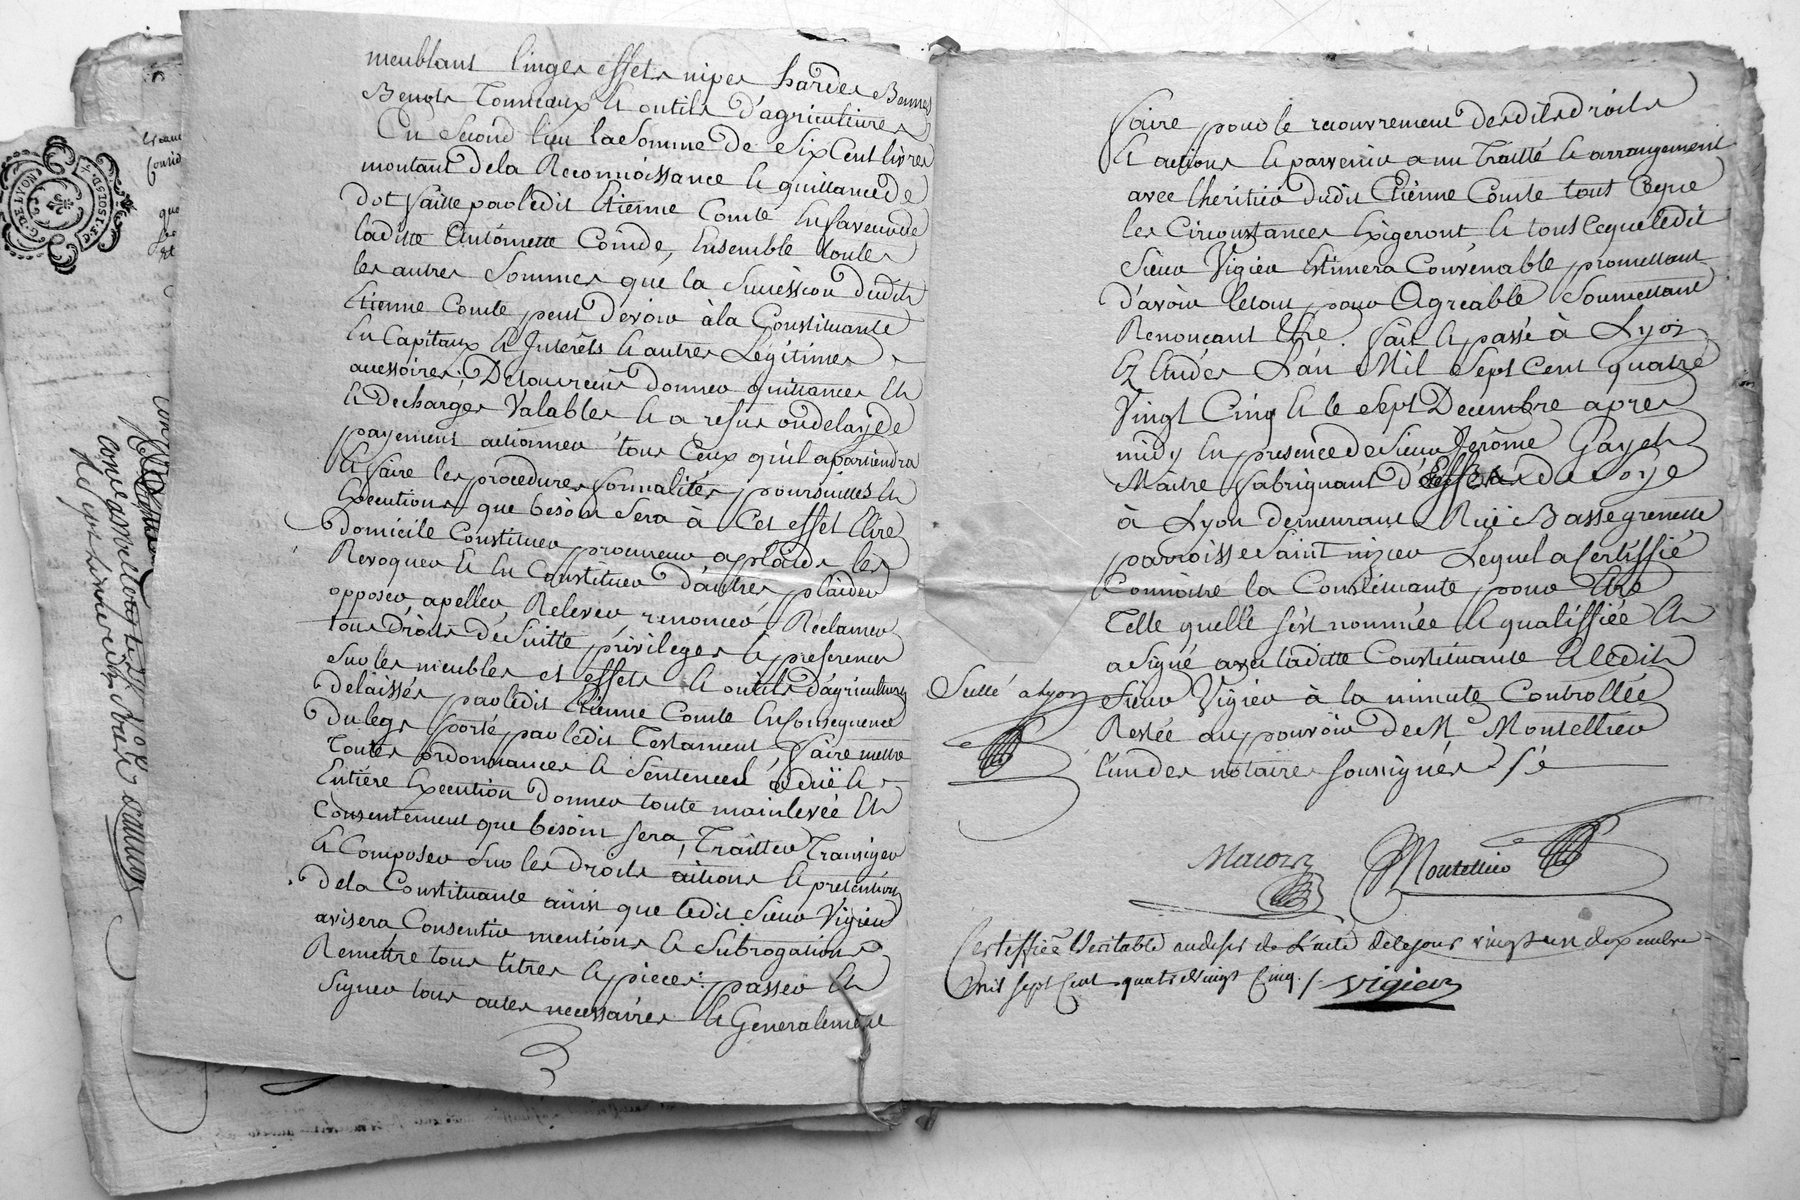 meublant linges effets nipes hardes Bennes
Benots Tonneaux & outils d'agriculture
En Second lieu la Somme de Six Cent livres
montant dela Reconnoissance & quittance de
dot faitte par ledit Etienne Comte En faveur de
laditte Antoinette Coinde, Ensemble toutes
les autres Sommes que la Succession dudit
Etienne Comte peut devoir à la Constituante
En Capitaux & Interêts & autres Légitimes
accessoires; De tout reçu donner quittances Et
& decharges Valables & a refus ou delay de
payement actionner tous Ceux qu'il apartiendra
& faire les procedures formalités poursuittes Et
Executions que besoin Sera à Cet effet Elire
domicile Constituer procureur a plaids les
Revoquer & En Constituer d'autres plaider
opposer apeller, Relever, renoncer, Réclamer
tous Droits de Suitte privileges & preferences
Sur les meubles et effets & outils d'agriculture
delaissés par ledit Etienne Comte En Consequence
du legs porté par ledit Testament, faire mettre
toutes ordonnances & Sentences à duë &
Entiére Execution Donner toute mainlevée Et
Consentement que besoin sera, Traitter Transiger
& Composer Sur les droits actions & pretentions
dela Constituante ainsi que ledit Sieur Vigier
avisera Consentir mentions & Subrogations
Remettre tous titres & pieces: passer Et
Signer tous actes necessaires & Generalement
faire pour le recouvrement desdits droits
& actions & parvenir a un Traitté & arrangement
avec l'heritier dudit Etienne Comte tout Ceque
les Circonstances Exigeront, & tout Ceque ledit
Sieur Vigier Estimera Convenable promettant
d'avoir letout pour Agreable Soumettant
Renonçant &re. fait & passé à Lyon
Ez Etudes L'an Mil Sept Cent quatre
Vingt Cinq & le Sept Decembre après
midy En presence de Sieur Jerôme Gayet
Maitre fabriquant d'Effets de Soye
à Lyon demeurant Ruë Basse grenette
parroisse Saint nizier Lequel a Certiffié
Connoitre la Constituante pour Etre
Telle quelle s'est nommée & qualiffiée Et
a Signé avec laditte Constituante & ledit
Sellé a lyon
Sieur Vigier à la minute Controllée
Restée au pouvoir de Me Montellier
l'un des notaires soussignés
Montellier
Certiffiée Veritable au desir de l'acte de ce jour vingt un dexembre
mil sept Cent quatre Vingt Cinq. Vigier